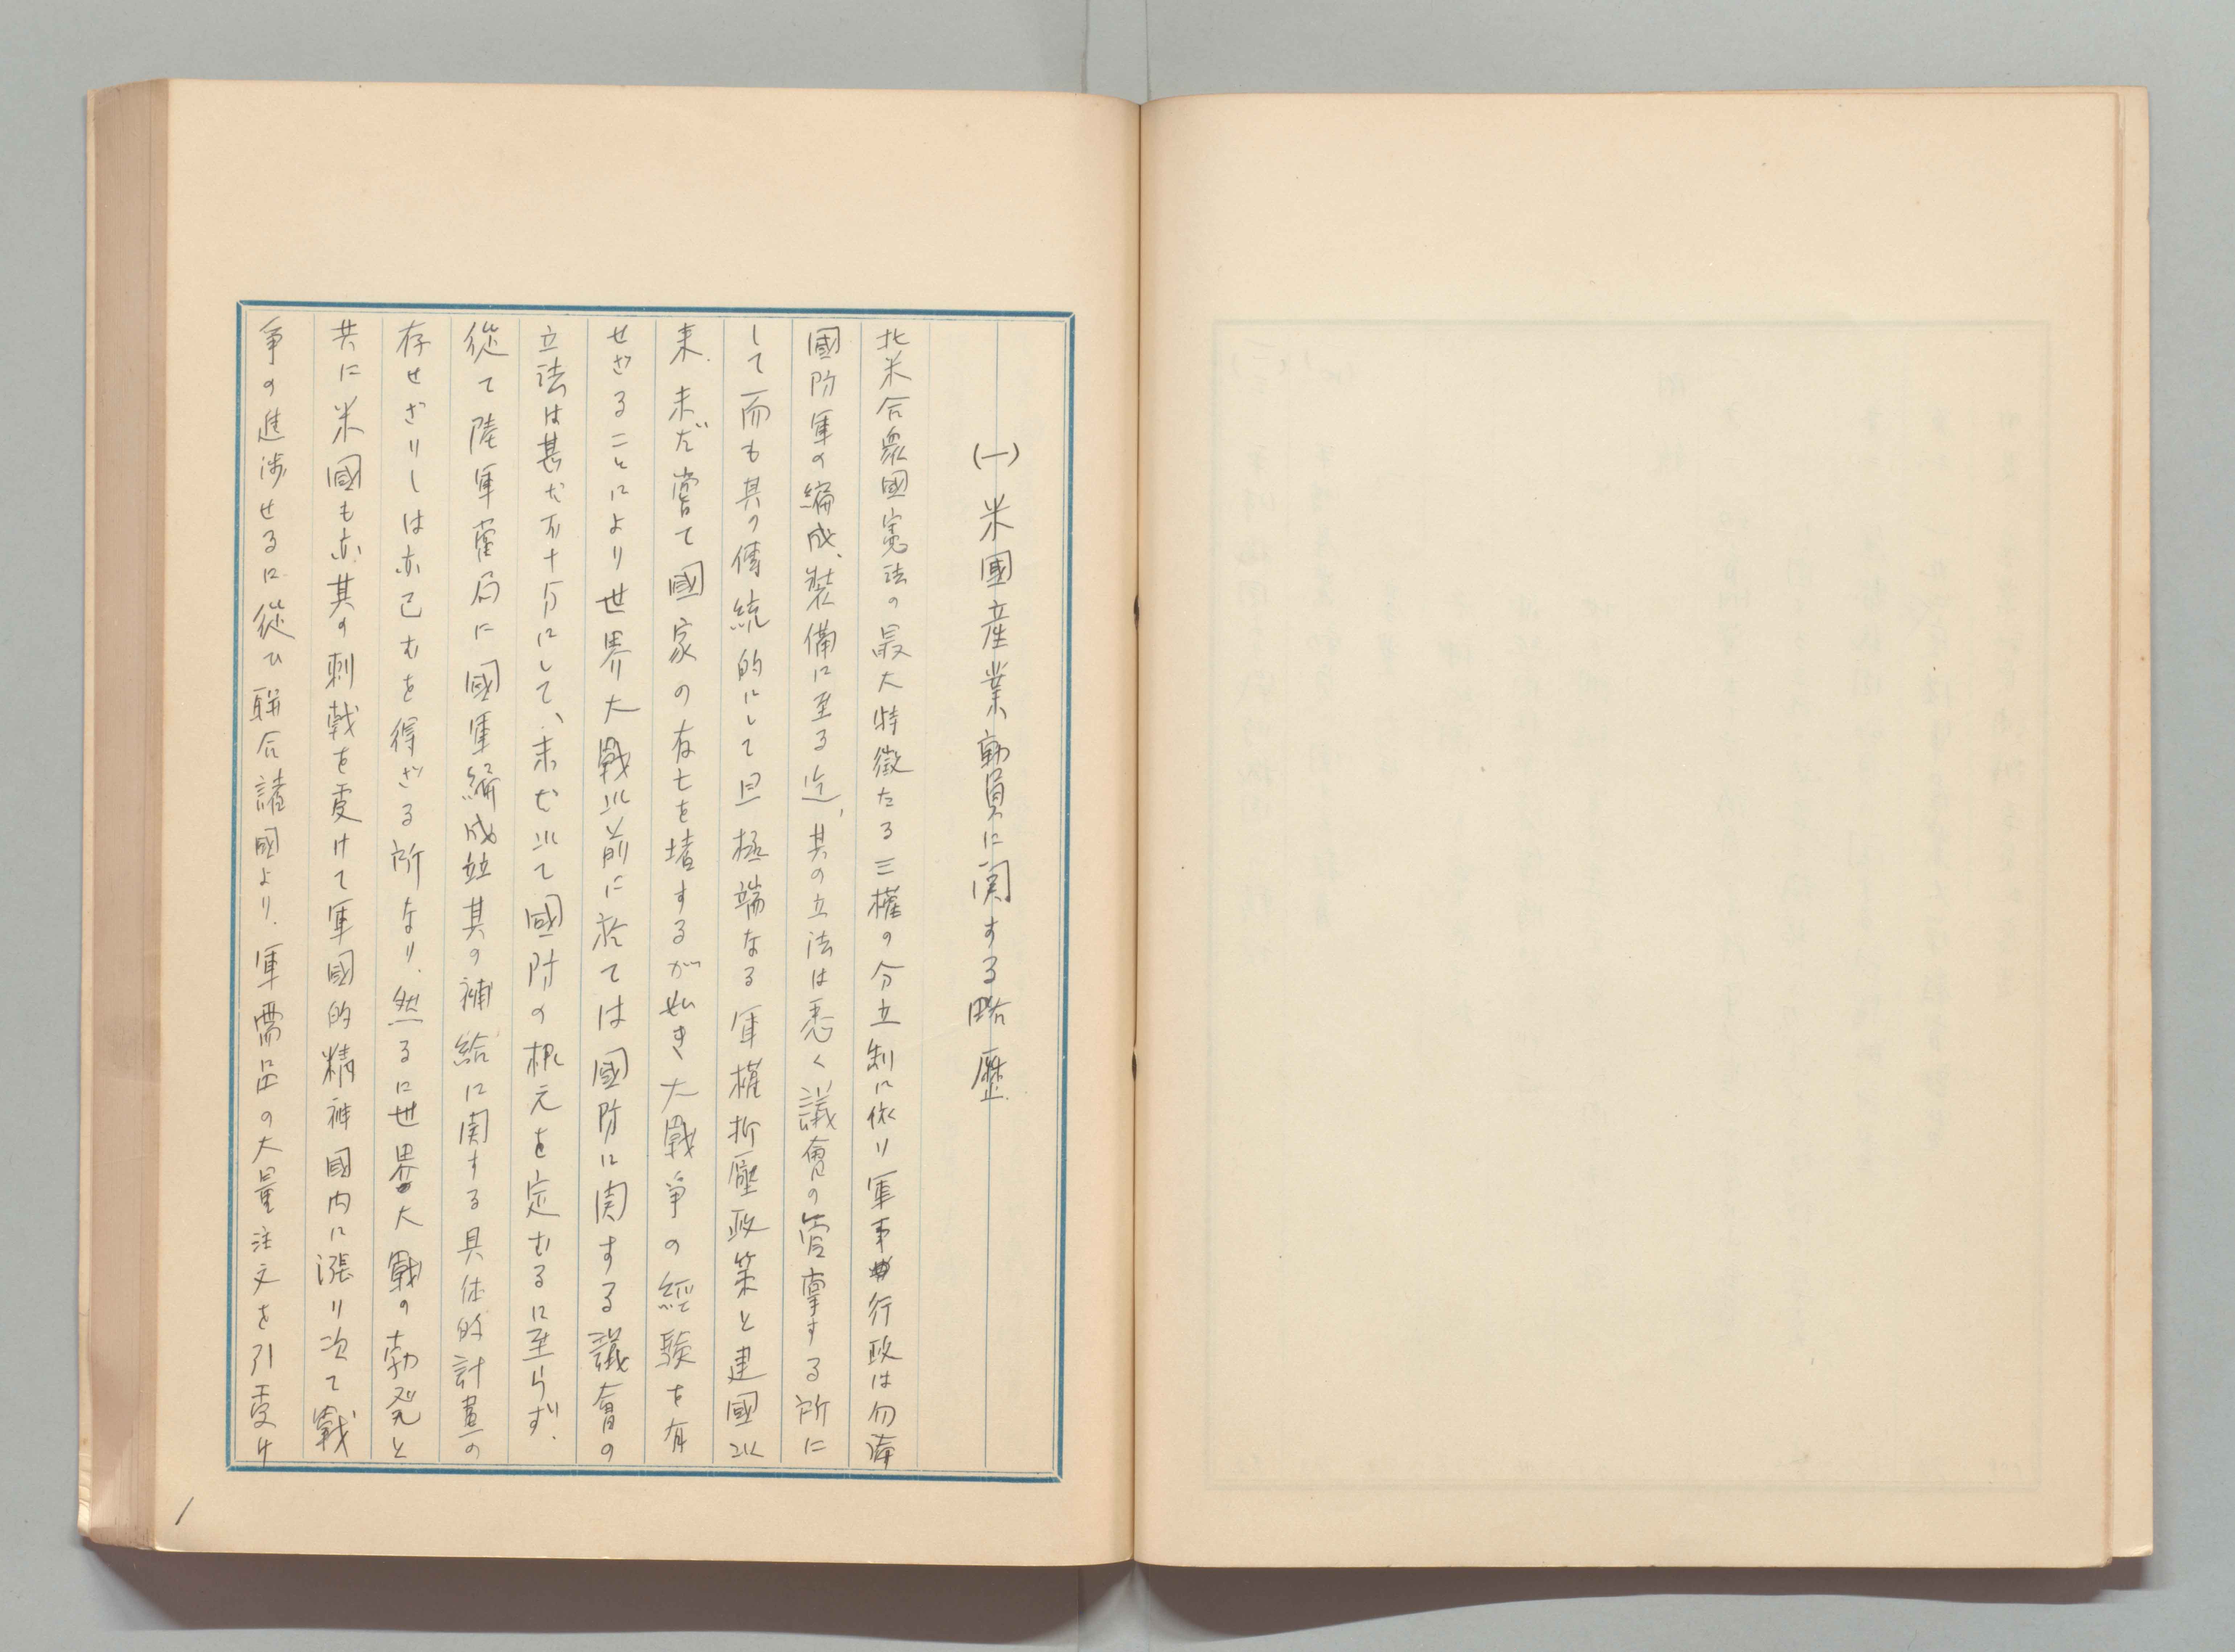 (一) 米國産業動員に関する略歴
北米合衆國憲法の最大特徴たる三權の分立制に依り軍事行政は勿論
國防軍の編成、裝備に至る迄、其の立法は悉く議會の管掌する所に
して而も其の傳統的にして且極端なる軍權抑壓政策と建國以
来、未だ嘗て國家の存亡を堵するが如き大戰争の經験を有
せざることにより世界大戰以前に於ては國防に関する議會の
立法は甚だ不十分にして、未だ以て國防の根元を定むるに至らず、
從て陸軍當局に國軍編成並其の補給に関する具体的計畫の
存せざりしは亦已むを得ざる所なり、然るに世界大戰の勃発と
共に米國も亦其の刺戟を受けて軍國的精神國内に漲り次て戰
争の進渉せるに從ひ聯合諸國より、軍需品の大量注文を引受け
1